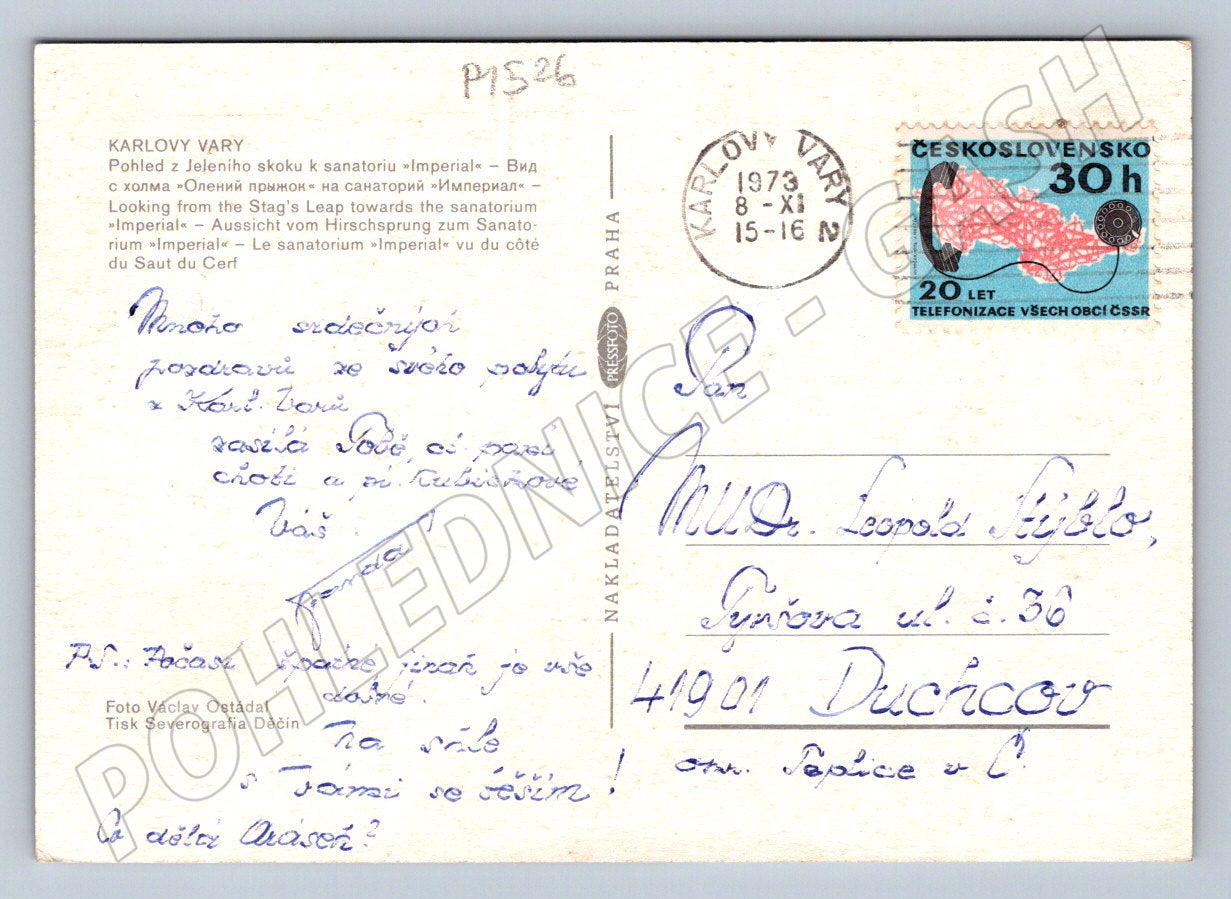 P1526
KARLOVY VARY
Pohled z Jeleního skoku k sanatoriu »Imperial« – Вид
с холма »Олений прыжок« на санаторий »Империал« –
Looking from the Stag's Leap towards the sanatorium
»Imperial« – Aussicht vom Hirschsprung zum Sanato-
rium »Imperial« – Le sanatorium »Imperial« vu du côté
du Saut du Cerf
Mnoho srdečných
pozdravů ze svého pobytu
z Karl. Varů
zasílá Tobě, ct. paní
choti a pí.
Váš
PS.: Počasí špatné jinak je vše
dobré.
Na
s Vámi se těším!
Co dělá
Foto Václav Ostádal
Tisk Severografia Děčín
NAKLADATELSTVÍ PRESSFOTO PRAHA
KARLOVY VARY 2
1973
8-XI
15-16
ČESKOSLOVENSKO
30h
20 LET
TELEFONIZACE VŠECH OBCÍ ČSSR
Pan
MUDr. Leopold Stýblo,
ul. č. 36
41901 Duchcov
okr. Teplice v Č.
POHLEDNICE-GUSH